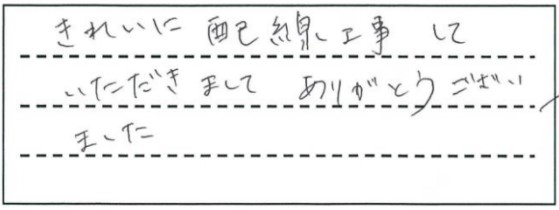 きれいに 配線工事 して
いただきまして ありがとうござい
ました